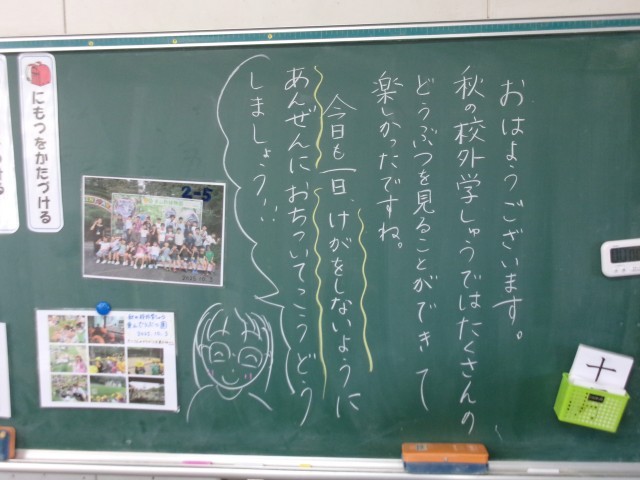 おはようございます。
秋の校外学しゅうではたくさんの
どうぶつを見ることができて
楽しかったですね。
今日も一日、けがをしないように
あんぜんにおちついてこうどう
しましょう!!
2-5
にもつをかたづける
十